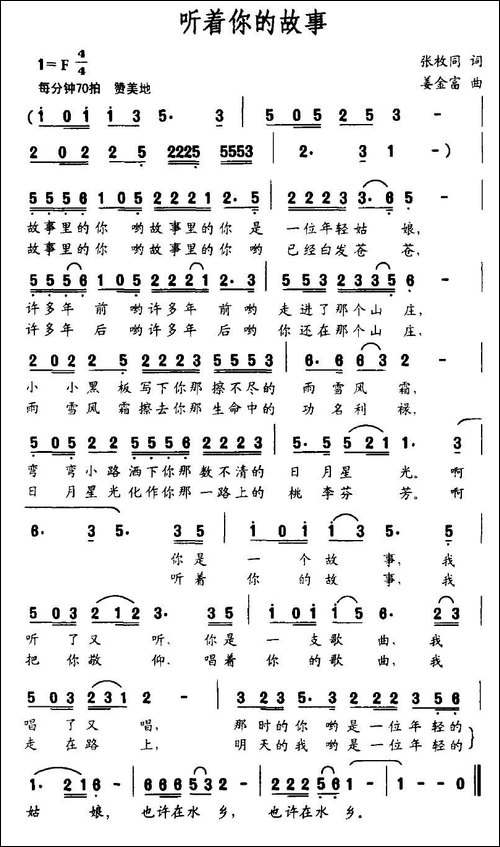 听着你的故事
1=F 4/4
张枚同 词
每分钟70拍 赞美地
姜金富 曲
(i 0 i i i 3 5· 3 | 5 0 5 2 5 3 - |
2 0 2 2 5 2225 5553 | 2· 3 1 - )
5 5 5 6 1 0 5 2 2 2 1 2· 5 | 2 2 2 3 3· 6 5 - |
故事里的你 哟故事里的你 是 一位年轻姑 娘,
故事里的你 哟故事里的你 哟 已经白发苍 苍,
5 5 5 6 1 0 5 2 2 2 1 2· 3 | 5 5 3 2 3 3 5 - |
许多年 前 哟许多年 前哟 走进了那个山 庄,
许多年 后 哟许多年 后哟 你还在那个山 庄,
2 0 2 2 5 2 2 2 3 5 5 5 3 | 6· 6 6 3 2 - |
小 小黑 板写下你那擦不尽的 雨 雪风 霜,
雨 雪风 霜擦去你那生命中的 功 名利 禄,
5 0 5 2 5 5 5 5 6 2 2 2 3 | 5· 5 5 2 1 1· 3
弯 弯小路 洒下你那数不清的 日 月星 光。啊
日 月星光化作你那一路上的 桃 李芬 芳。啊
6· 3 5· 3 5 | i 0 i i 3 5· 5 |
你是 一 个故 事,我
听着 你 的故 事,我
5 0 3 2 1 2 3· 3 5 | i 0 i i 5 6· 2 3 |
听 了又 听、你是 一 支歌 曲、我
把 你敬 仰、唱着 你 的歌 曲、我
5 0 3 2 3 1 2 - | 3 2 3 5· 3 2 2 2 3 5 6 |
唱 了又 唱, 那时的你 哟是一位年轻的
走 在路 上, 明天的我 哟是一位年轻的
1· 2 1 6 - | 6 6 6 5 3 2 - | 2 2 2 5 6 1 - | 1 - - 0 ‖
姑 娘, 也许在水 乡, 也许在水 乡。